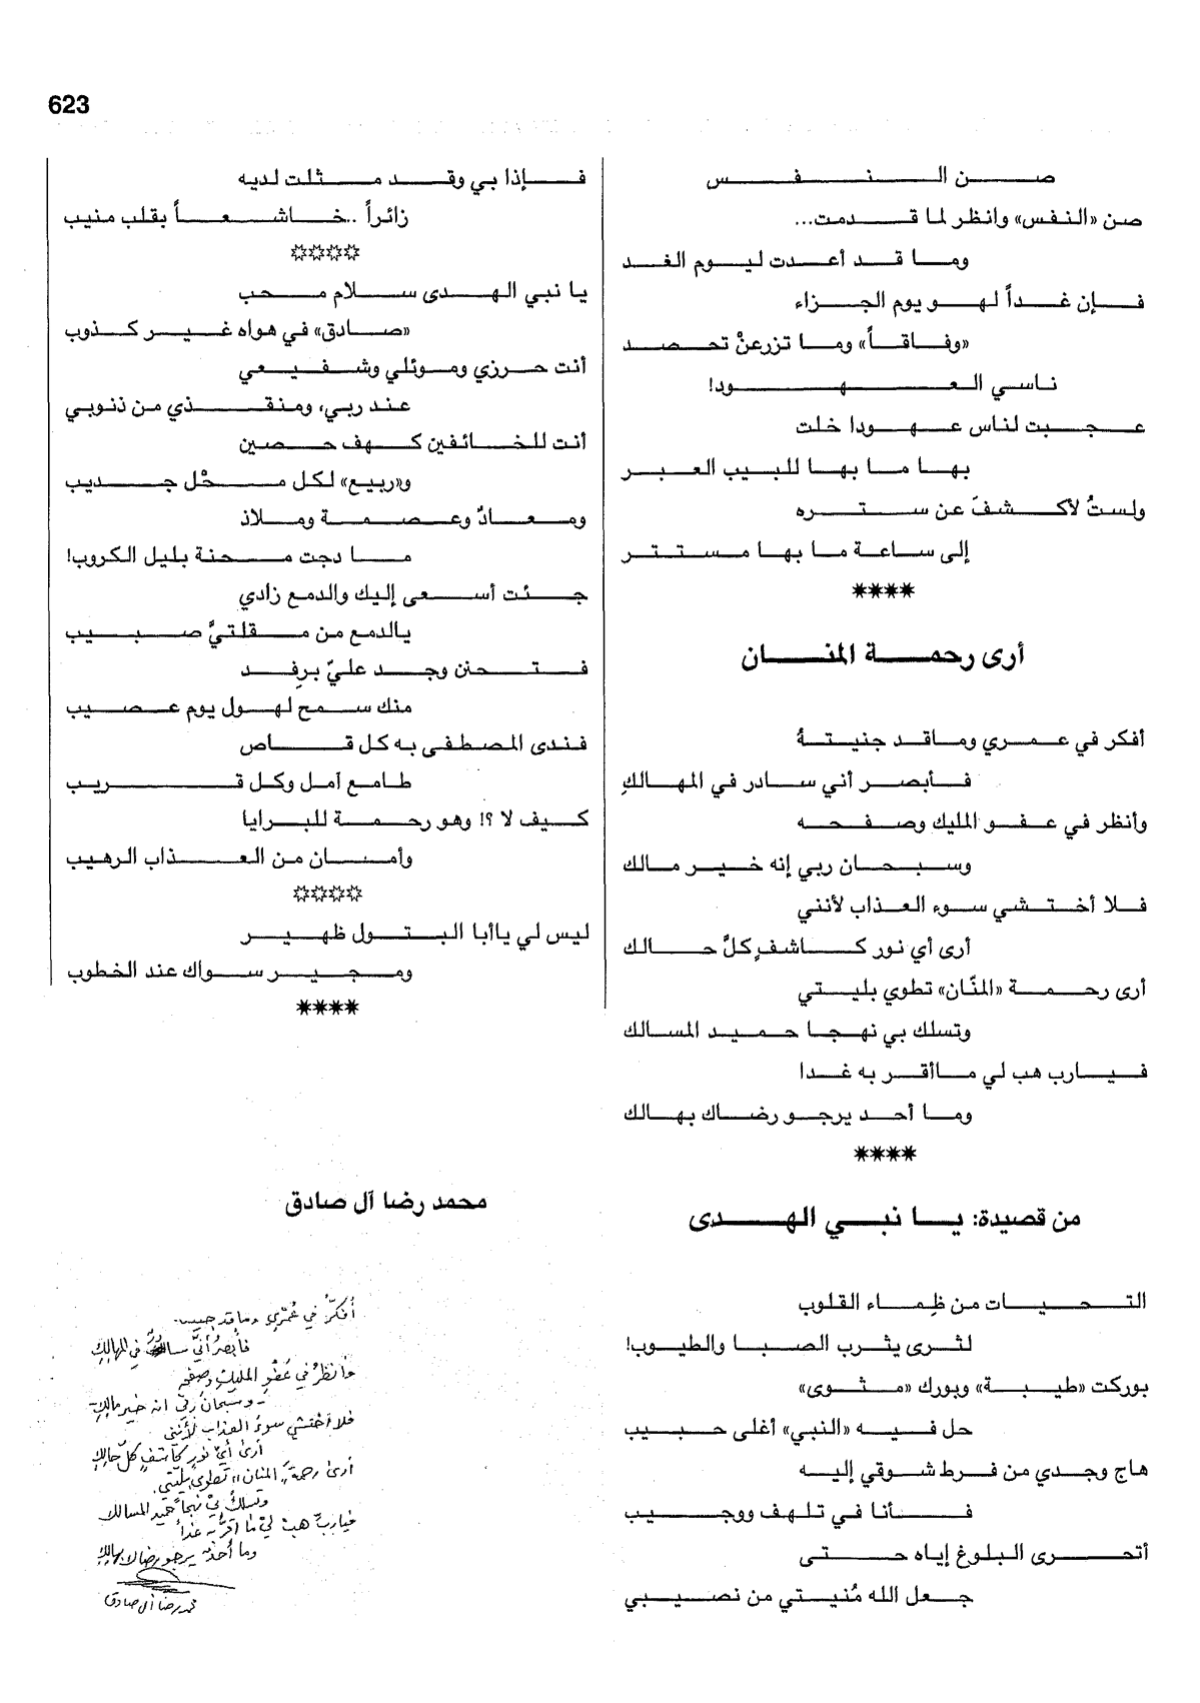 623
صن النفس
صن «النفس» وانظر لما قدمت...
وما قد أعدت ليوم الغد
فإن غداً لهو يوم الجزاء
«وفاقاً» وما تزرعنْ تحصد
ناسي العهود!
عجبت لناس عهودا خلت
بها ما بها للبيب العبر
ولستُ لأكشفَ عن ستره
إلى ساعة ما بها مستتر
****
أرى رحمة المنان
أفكر في عمري وماقد جنيتهُ
فأبصر أني سادر في المهالكِ
وأنظر في عفو المليك وصفحه
وسبحان ربي إنه خير مالك
فلا أختشي سوء العذاب لأنني
أرى أي نور كاشفٍ كلَّ حالك
أرى رحمة «المنّان» تطوي بليتي
وتسلك بي نهجا حميد المسالك
فيارب هب لي ماأقر به غدا
وما أحد يرجو رضاك بهالك
****
من قصيدة: يا نبي الهدى
التحيات من ظِماء القلوب
لثرى يثرب الصبا والطيوب!
بوركت «طيبة» وبورك «مثوى»
حل فيه «النبي» أغلى حبيب
هاج وجدي من فرط شوقي إليه
فأنا في تلهف ووجيب
أتحرى البلوغ إياه حتى
جعل الله مُنيتي من نصيبي
فإذا بي وقد مثلت لديه
زائراً ..خاشعاً بقلب منيب
****
يا نبي الهدى سلام محب
«صادق» في هواه غير كذوب
أنت حرزي وموئلي وشفيعي
عند ربي، ومنقذي من ذنوبي
أنت للخائفين كهف حصين
و«ربيع» لكل محْل جديب
ومعادٌ وعصمة وملاذ
ما دجت محنة بليل الكروب!
جئت أسعى إليك والدمع زادي
يالدمع من مقلتيَّ صبيب
فتحنن وجد عليّ برِفد
منك سمح لهول يوم عصيب
فندى المصطفى به كل قاص
طامع آمل وكل قريب
كيف لا ؟! وهو رحمة للبرايا
وأمان من العذاب الرهيب
****
ليس لي ياأبا البتول ظهير
ومجير سواك عند الخطوب
****
محمد رضا آل صادق
أفكّرُ في عُمْري وماقد جنيت
فأبصرُ أنّي في المهالكِ
وأنظرُ في عَفْوِ المليكِ وصفحه
وسبحان ربّي انه خير مالكِ
فلا أختشي سوءَ العذاب لأنني
أرى أيَّ نورٍ كاشفٍ كلَّ حالكِ
أرى رحمةَ «المنان» تطوي بليّتي
وتسلكُ بيْ نهجاً حميد المسالك
فياربِّ هبْ ليْ ما أقرُّ به غداً
وما أحدٌ يرجو رضاك بهالكِ
محمد رضا آل صادق